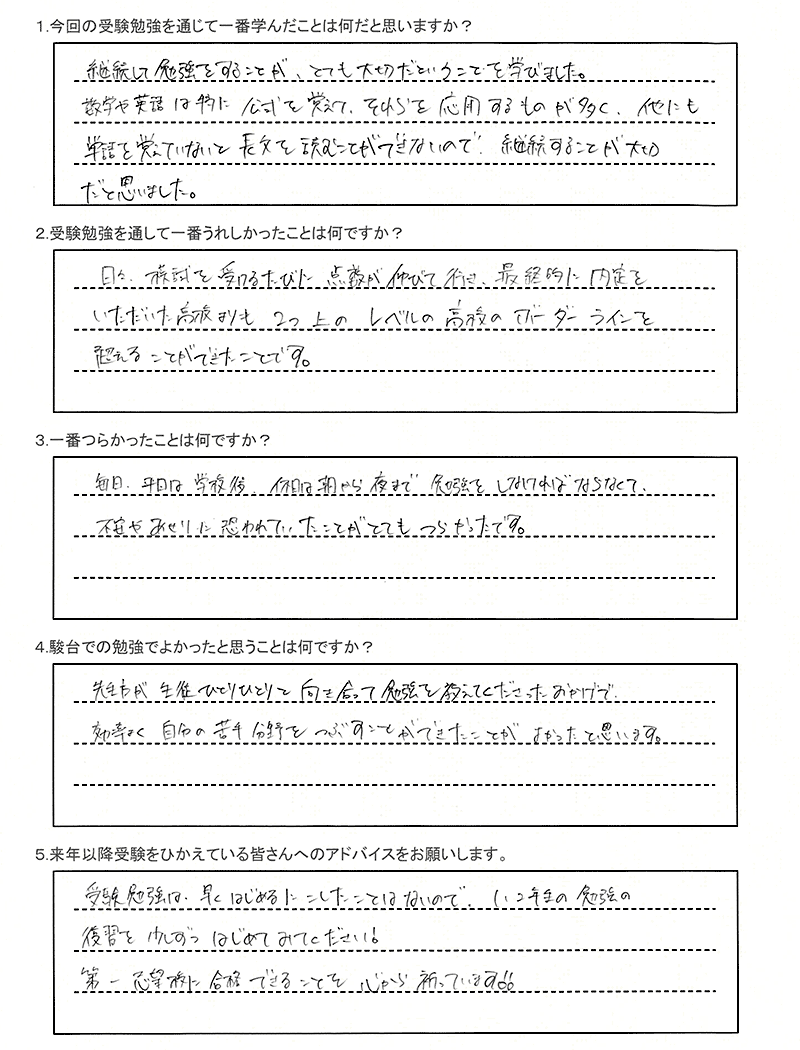 1.今回の受験勉強を通じて一番学んだことは何だと思いますか？
継続して勉強をすることが、とても大切だということを学びました。
数学や英語は特に公式を覚えて、それらを応用するものが多く、他にも
単語を覚えていないと長文を読むことができないので、継続することが大切
だと思いました。
2.受験勉強を通して一番うれしかったことは何ですか？
日々、模試を受けるたびに点数が伸びて行き、最終的に内定を
いただいた高校よりも2つ上のレベルの高校のボーダーラインを
超えることができたことです。
3.一番つらかったことは何ですか？
毎日、平日は学校後、休日は朝から夜まで勉強をしなければならなくて、
不安やあせりに思われていたことがとてもつらかったです。
4.駿台での勉強でよかったと思うことは何ですか？
先生方が生徒ひとりひとりと向き合って勉強を教えてくださったおかげで、
効率よく自分の苦手分野をつぶすことができたことがよかったと思います。
5.来年以降受験をひかえている皆さんへのアドバイスをお願いします。
受験勉強は、早くはじめるにこしたことはないので、1、2年生の勉強の
復習を少しずつはじめてみてください!
第一志望校に合格できることを心から祈っています!!